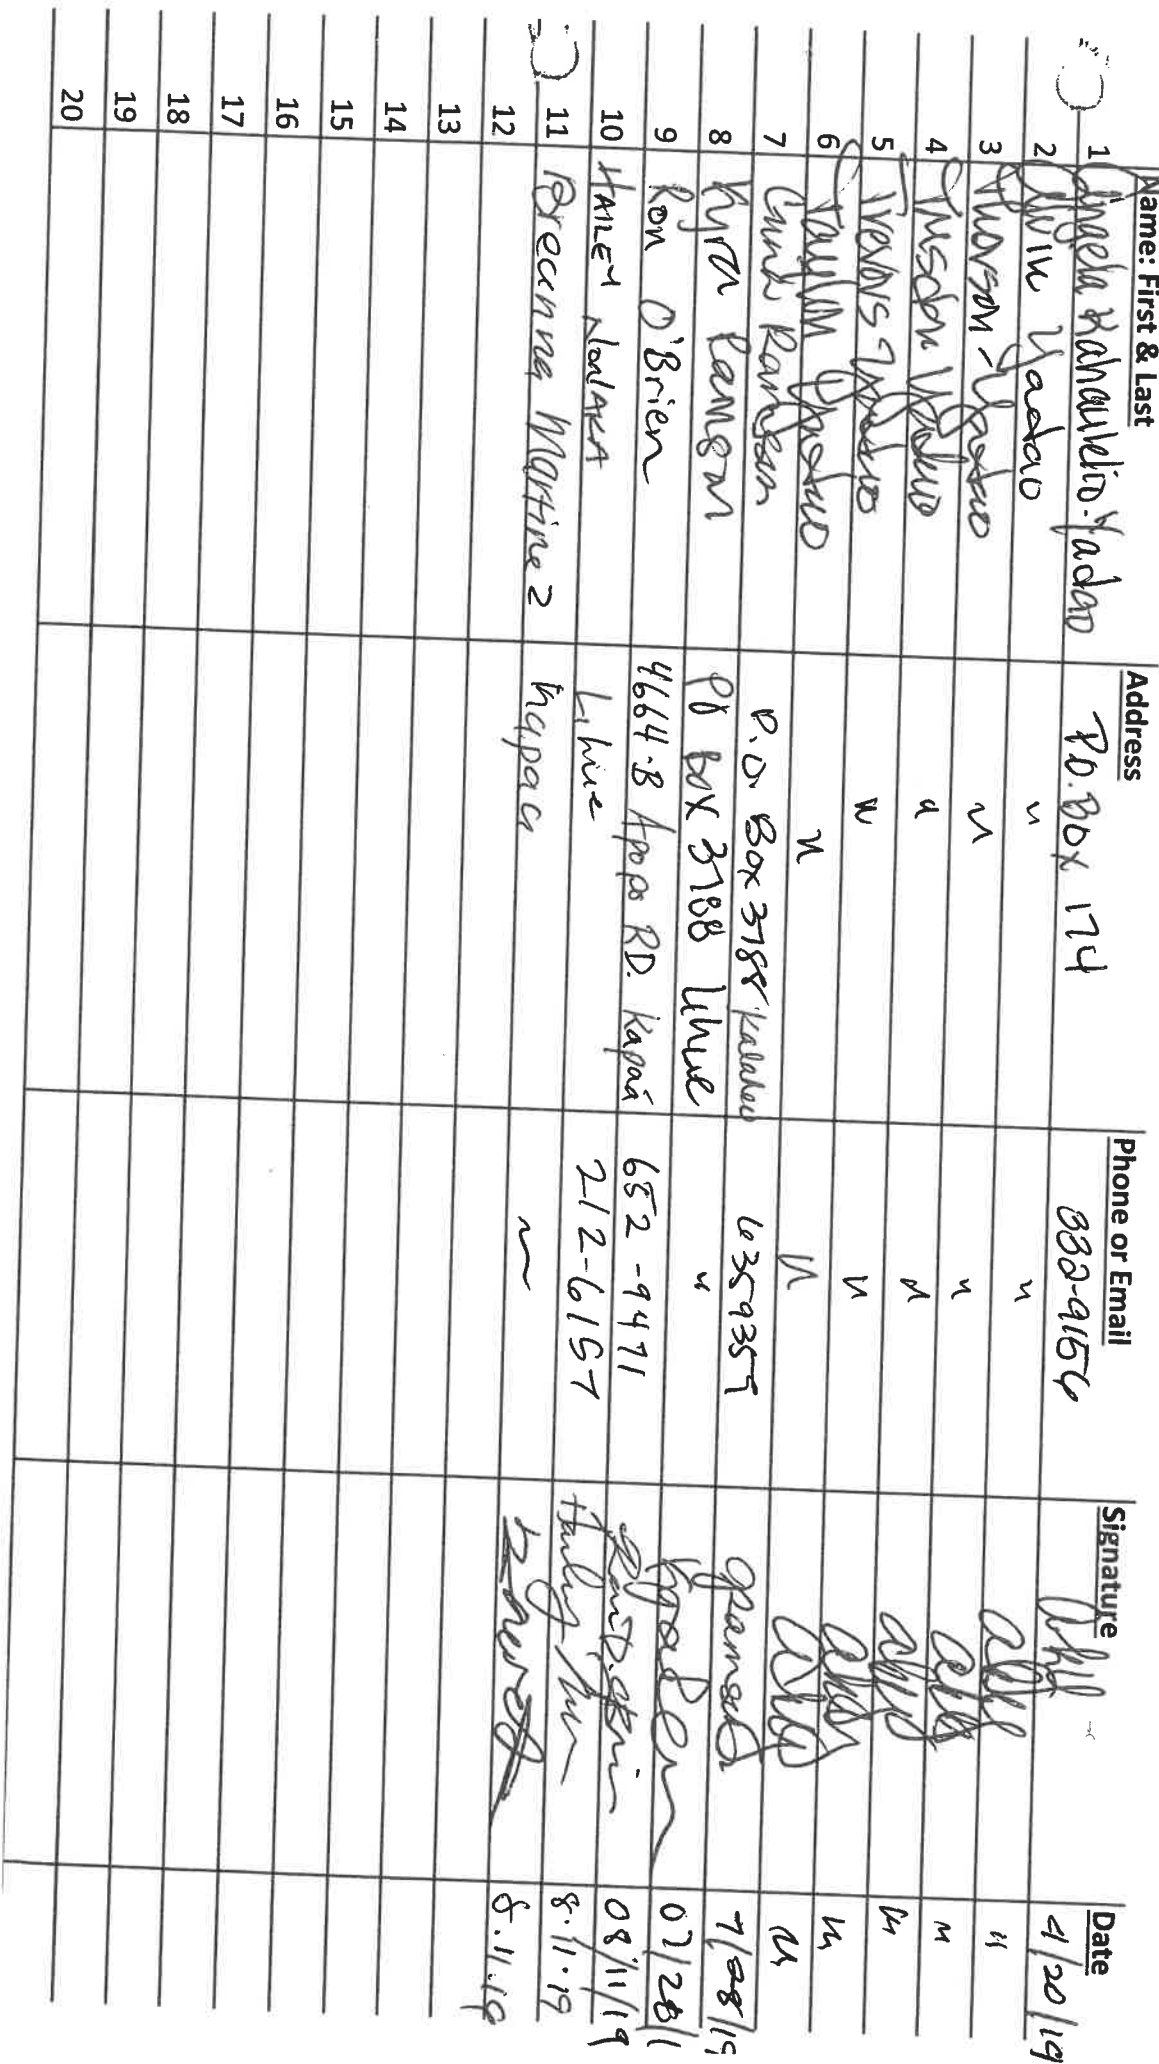 Name: First & Last Address Phone or Email Signature Date
1 Angela Kahaulelio-Yadao P.O. Box 174 332-9156 4/20/19
2 Alvin Yadao " " "
3 Yadao " " "
4 Yadao " " "
5 Yadao " " "
6 Yadao " " "
7 P.O. Box 3788 Kalaheo 6359357 7/28/19
8 Kyra Ramson PO BOX 3788 Lihue " 07/28/1
9 Ron O'Brien 4664-B Apopo RD. Kapaa 652-9471 08/11/19
10 HAILEY Lihue 212-6157 8.11.19
11 Breanna Martinez Kapaa ~ 8.11.19
12
13
14
15
16
17
18
19
20